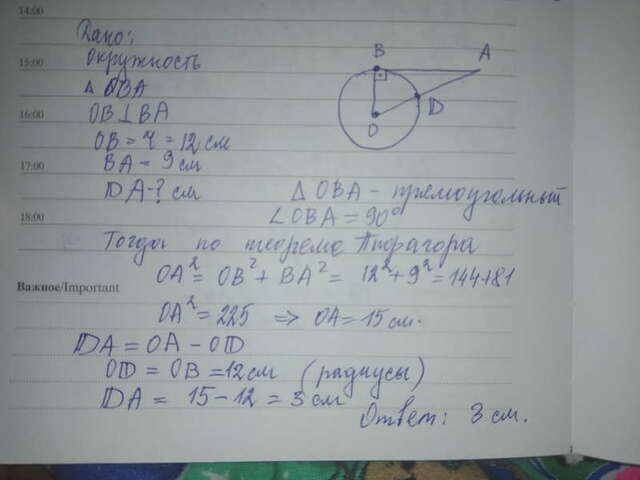 14:00
Дано:
15:00
окружность
△ OBA
16:00
OB ⊥ BA
OB = r = 12 см
17:00
BA = 9 см
DA - ? см
18:00
B
A
D
O
△ OBA - прямоугольный
∠OBA = 90°
Тогда по теореме Пифагора
OA² = OB² + BA² = 12² + 9² = 144 + 81
Важное/Important
OA² = 225 => OA = 15 см.
DA = OA - OD
OD = OB = 12 см (радиусы)
DA = 15 - 12 = 3 см
Ответ: 3 см.